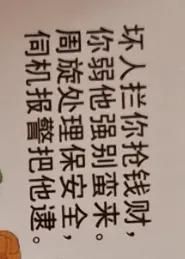 坏人拦你抢钱财，
你弱他强别蛮来。
周旋处理保安全，
伺机报警把他逮。